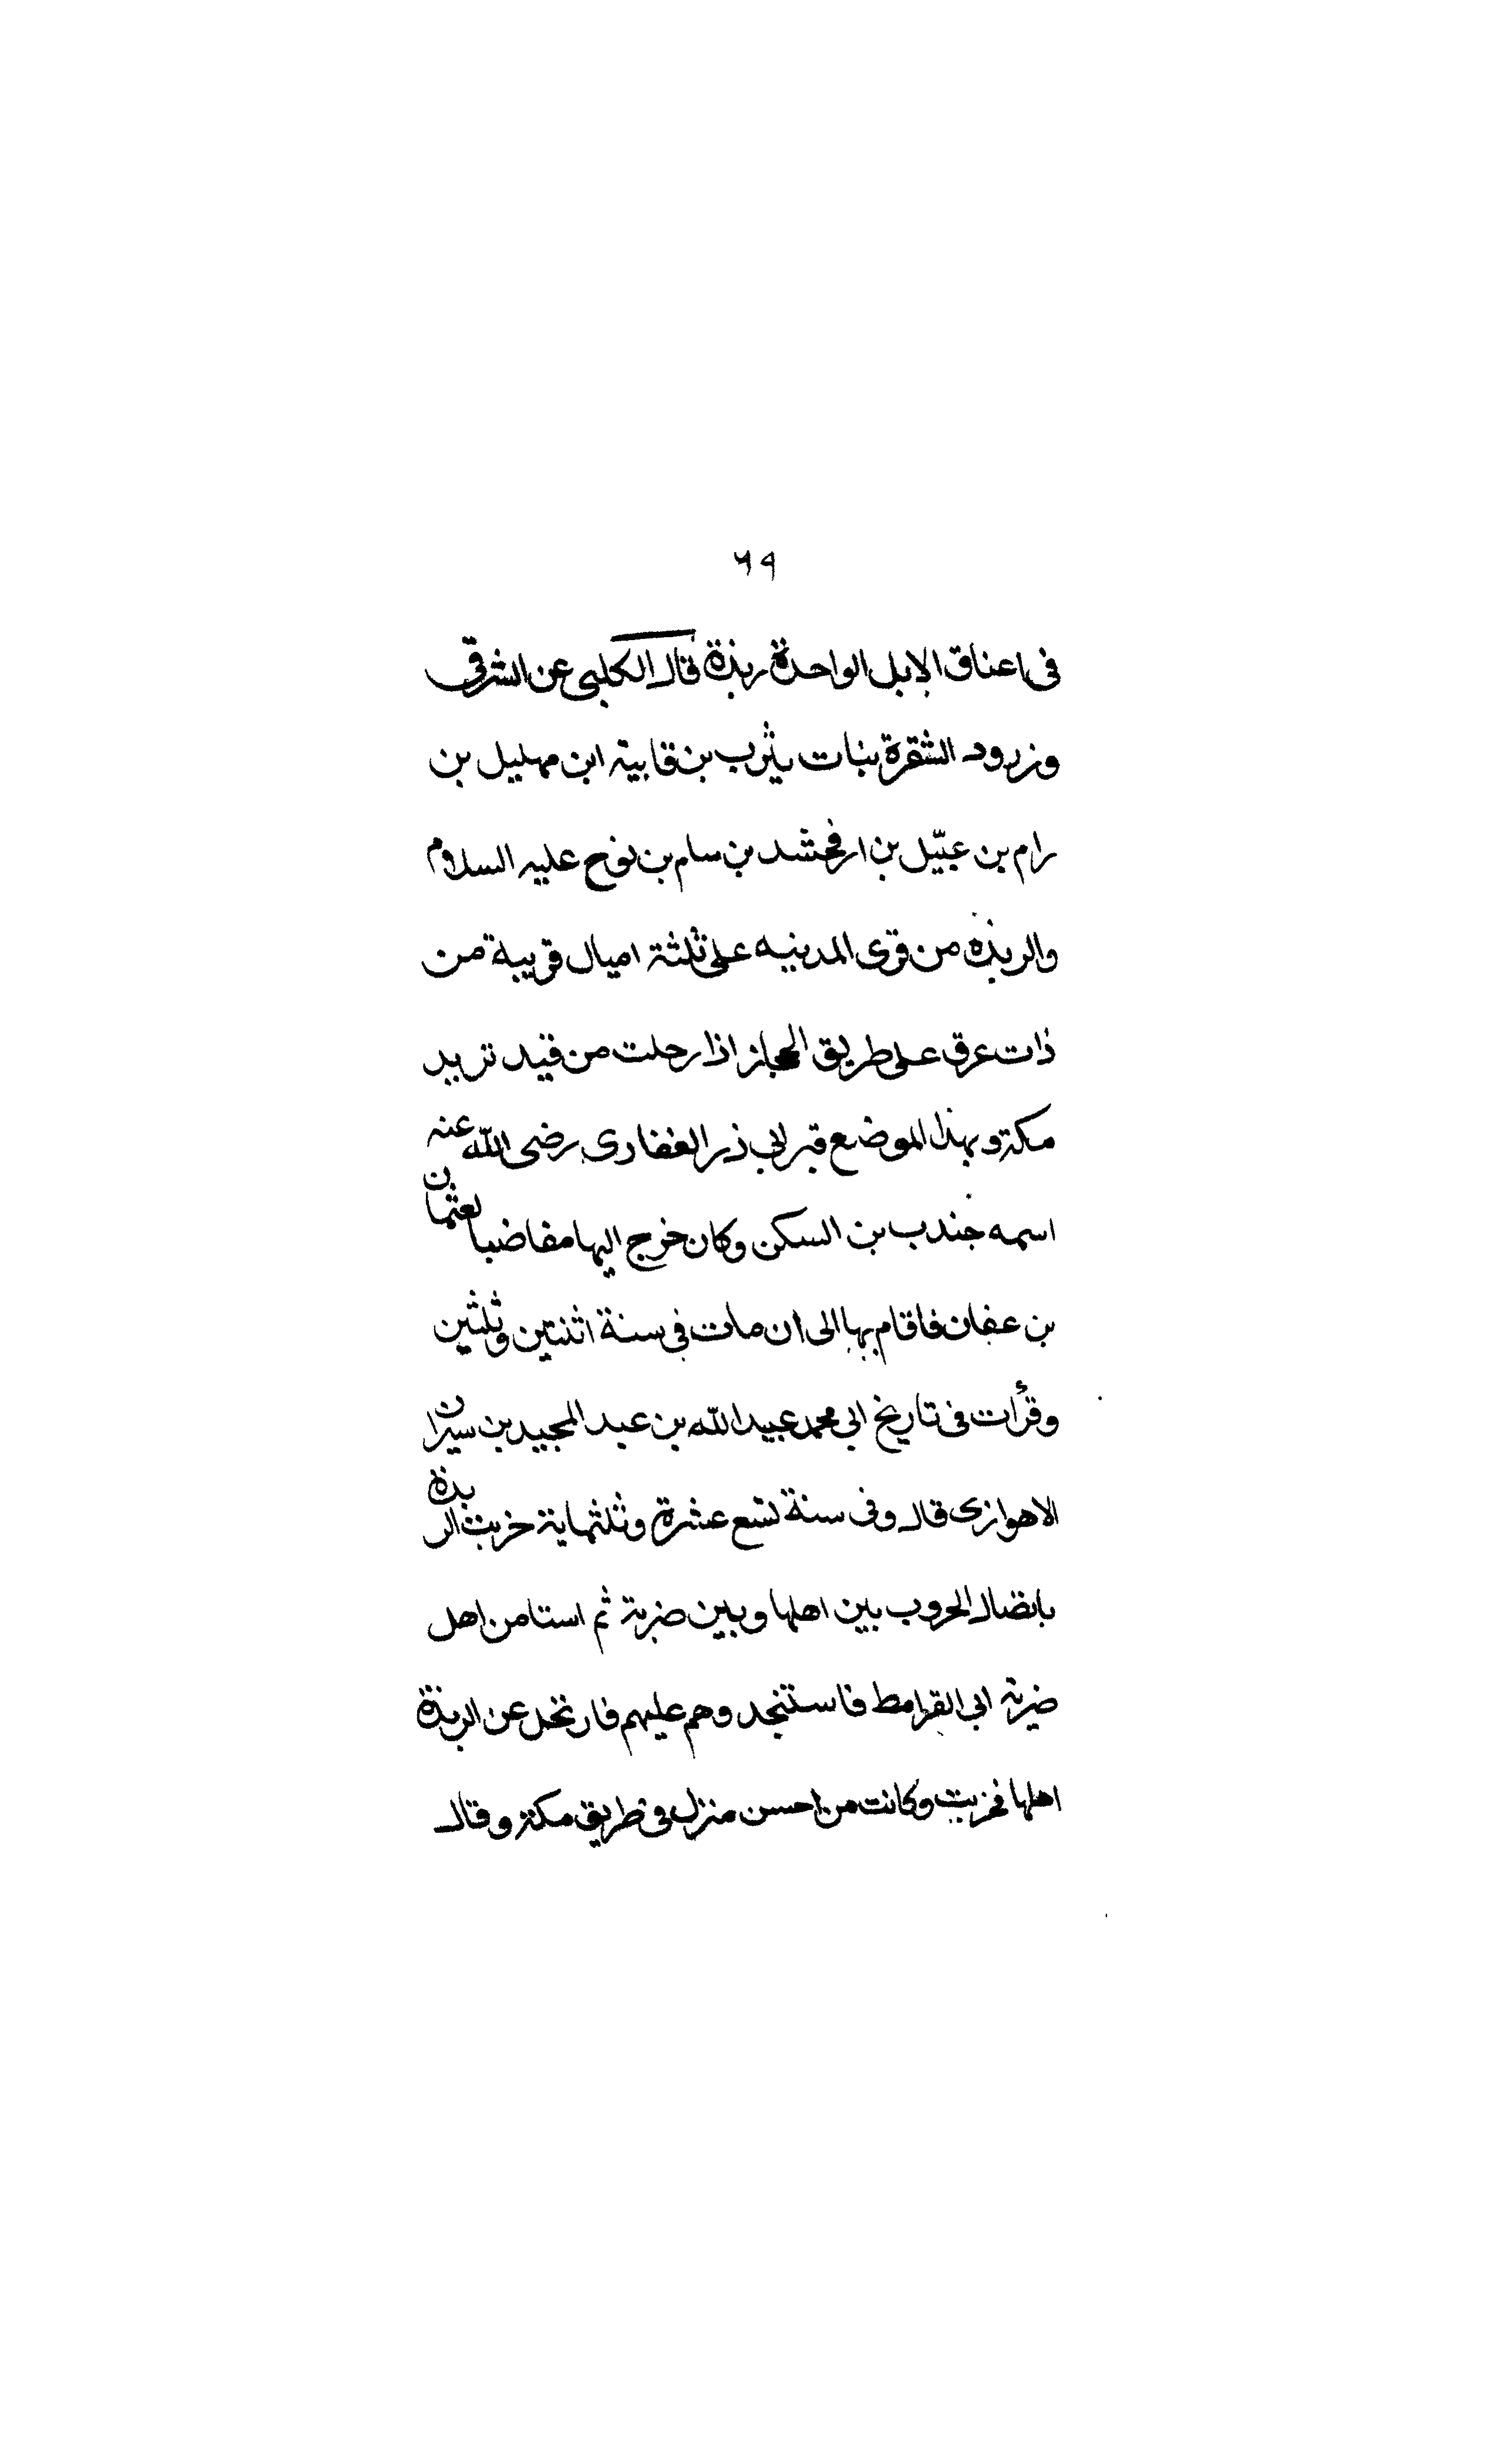 ٦٩
فى اعناق الابل الواحدة ربذة قال الكلبى عن الشرقى
وزرود الشقرة بنات يثرب بن قابية ابن مهليل بن
رام بن عبيّل بن ارفحشد بن سام بن نوح عليه السلام
والربذه من قرى المدينه على ثلثة اميال قريبة من
ذات عرق على طريق الحجاز اذا رحلت من فيد تريد
مكة وبهذا الموضع قبر لابى ذر الغفارى رضى اللّه عنه
اسمه جندب بن السكن وكان خرج اليها مغاضبا لعثمان
بن عفان فاقام بها الى ان مات فى سنة اثنتين وثلثين
وقرأت فى تاريخ ابى محمد عبيد اللّه بن عبد المجيد بن سيران
الاهوازى قال وفى سنة تسع عشرة وثلثماية خربت الربذة
باتصال الحروب بين اهلها وبين ضرية ثم استامن اهل
ضرية ابى القرامط فاستنجدوهم عليهم فارتحل عن الربذة
اهلها فخربت وكانت من احسن منزل فى طريق مكة وقال